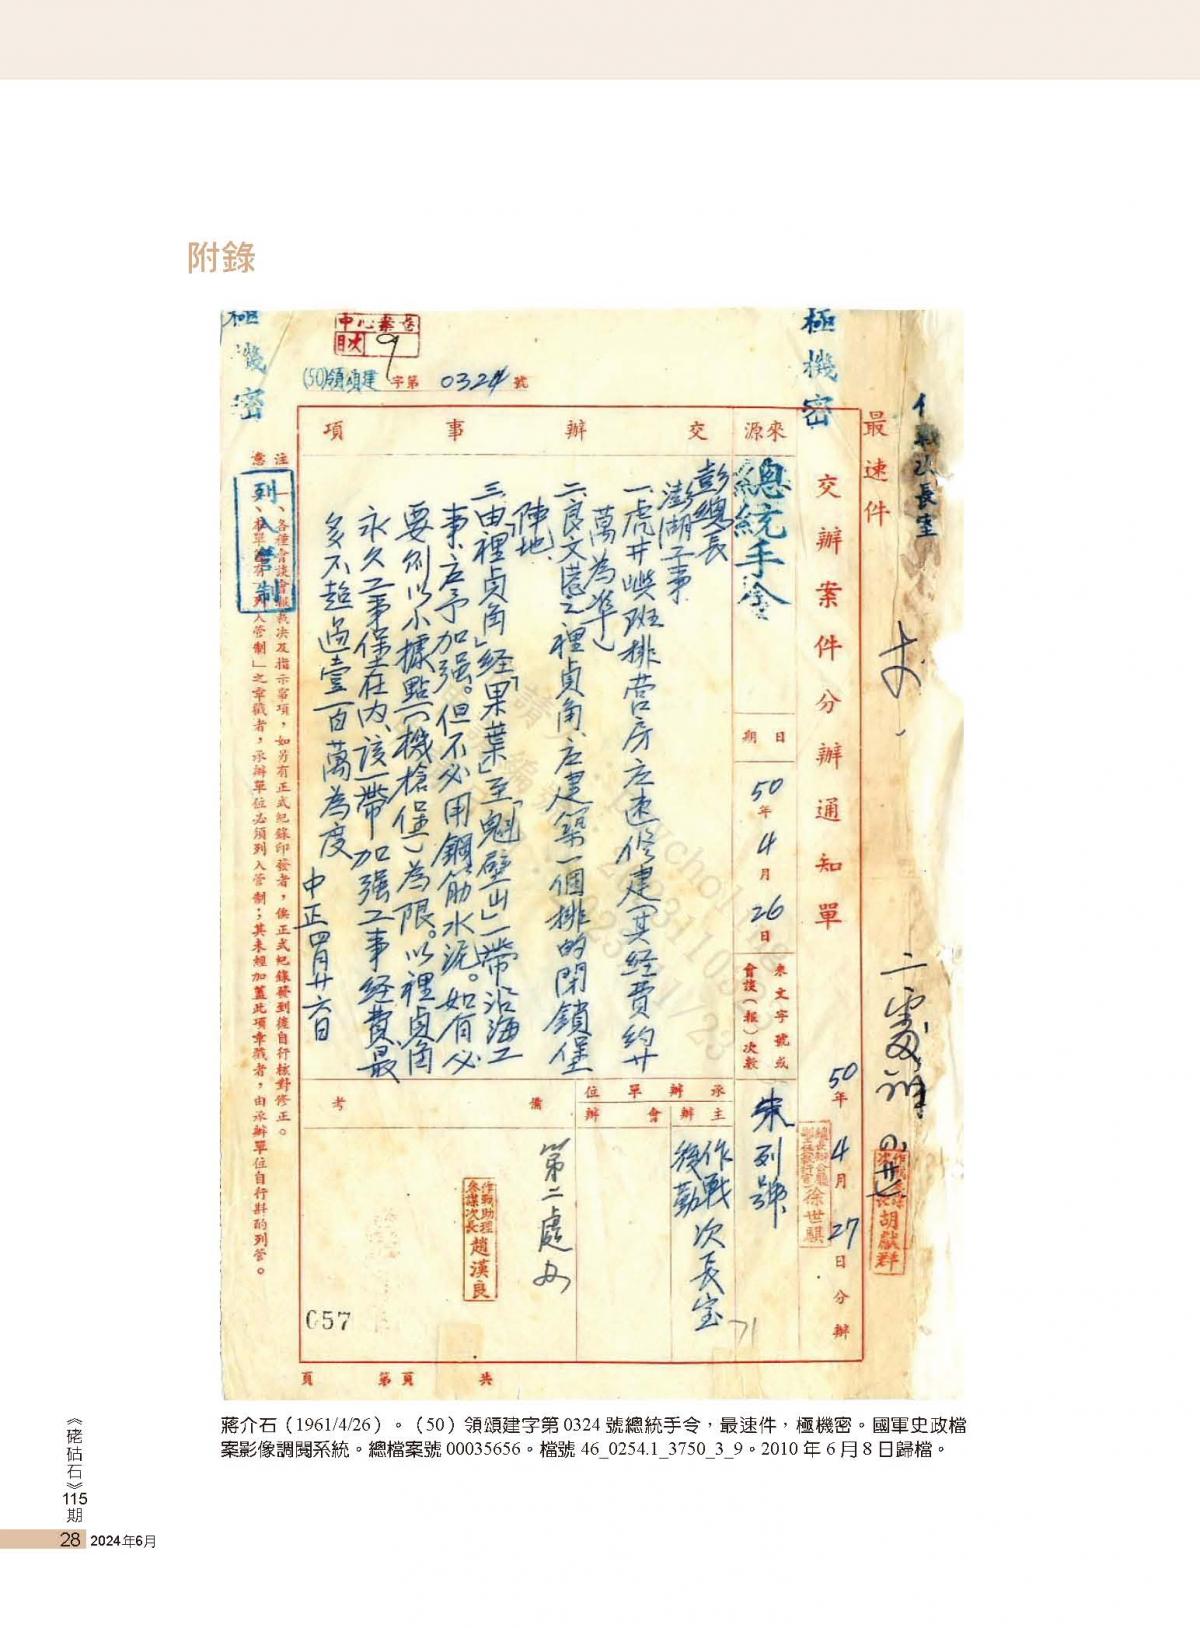 附錄
極機密
極機密
中心案卷
目次 9
(50)領頌建字第 0324 號
最速件
作戰次長室
交辦案件分辦通知單
來源
總統手令
日期
50年4月26日
來文字號或會談(報)次數
未列號
50年4月27日分辦
交辦事項
彭總長
澎湖工事
一、虎井嶼班排營房應速修建(其經費約廿
萬為準)
二、良文港之裡貞角應建築一個排的閉鎖堡
陣地、
三、由「裡貞角」經「果葉」至「魁壁山」一帶沿海工
事、應予加強。但不必用鋼筋水泥。如有必
要、則以小據點(機槍堡)為限。以裡貞角
永久工事保在內、該一帶加強工事經費最
多不超過壹百萬為度
中正四月廿六日
承辦單位
主辦
會辦
作戰次長室
後勤
備考
第二處办
作戰助理參謀次長趙漢良
徐世騏
二處辦
胡獻群
列入管制
注意
一、各種會談會報裁決及指示事項，如另有正式紀錄印發者，俟正式紀錄發到後自行核對修正。
列入管制」之章戳者，承辦單位必須列入管制；其未經加蓋此項章戳者，由承辦單位自行斟酌列管。
057
共 頁 第 頁
蔣介石（1961/4/26）。（50）領頌建字第 0324 號總統手令，最速件，極機密。國軍史政檔
案影像調閱系統。總檔案號 00035656。檔號 46_0254.1_3750_3_9。2010 年 6 月 8 日歸檔。
《硓𥑮石》115期
28 2024年6月